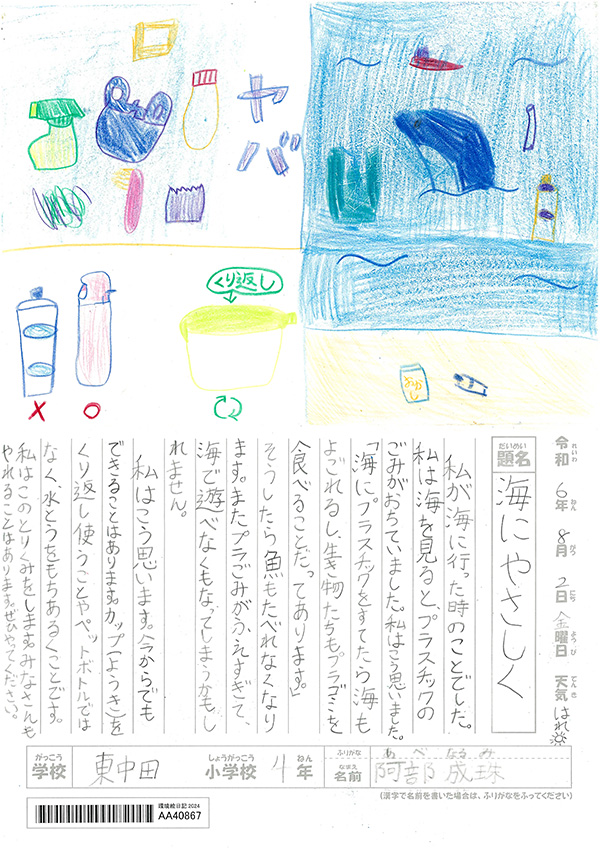 ヤバ
くり返し
× ○
おかし
令和6年8月2日金曜日 天気 はれ
れいわ ねん がつ にち ようび てんき
だいめい
題名 海にやさしく
私が海に行った時のことでした。
私は海を見ると、プラスチックの
ごみがおちていました。私はこう思いました。
「海にプラスチックをすてたら海も
よごれるし、生き物たちもプラゴミを
食べることだってあります。」
そうしたら魚もたべれなくなり
ます。またプラごみがふえすぎて、
海で遊べなくもなってしまうかもし
れません。
私はこう思います。今からでも
できることはあります。カップ(ようき)を
くり返し使うことやペットボトルでは
なく、水とうをもちあるくことです。
私はこのとりくみをします。みなさんも
やれることはあります。ぜひやってください。
がっこう しょうがっこう ねん ふりがな あべ なるみ
学校 東中田 小学校 4年 なまえ 名前 阿部 成珠
(漢字で名前を書いた場合は、ふりがなをふってください)
環境絵日記2024
AA40867